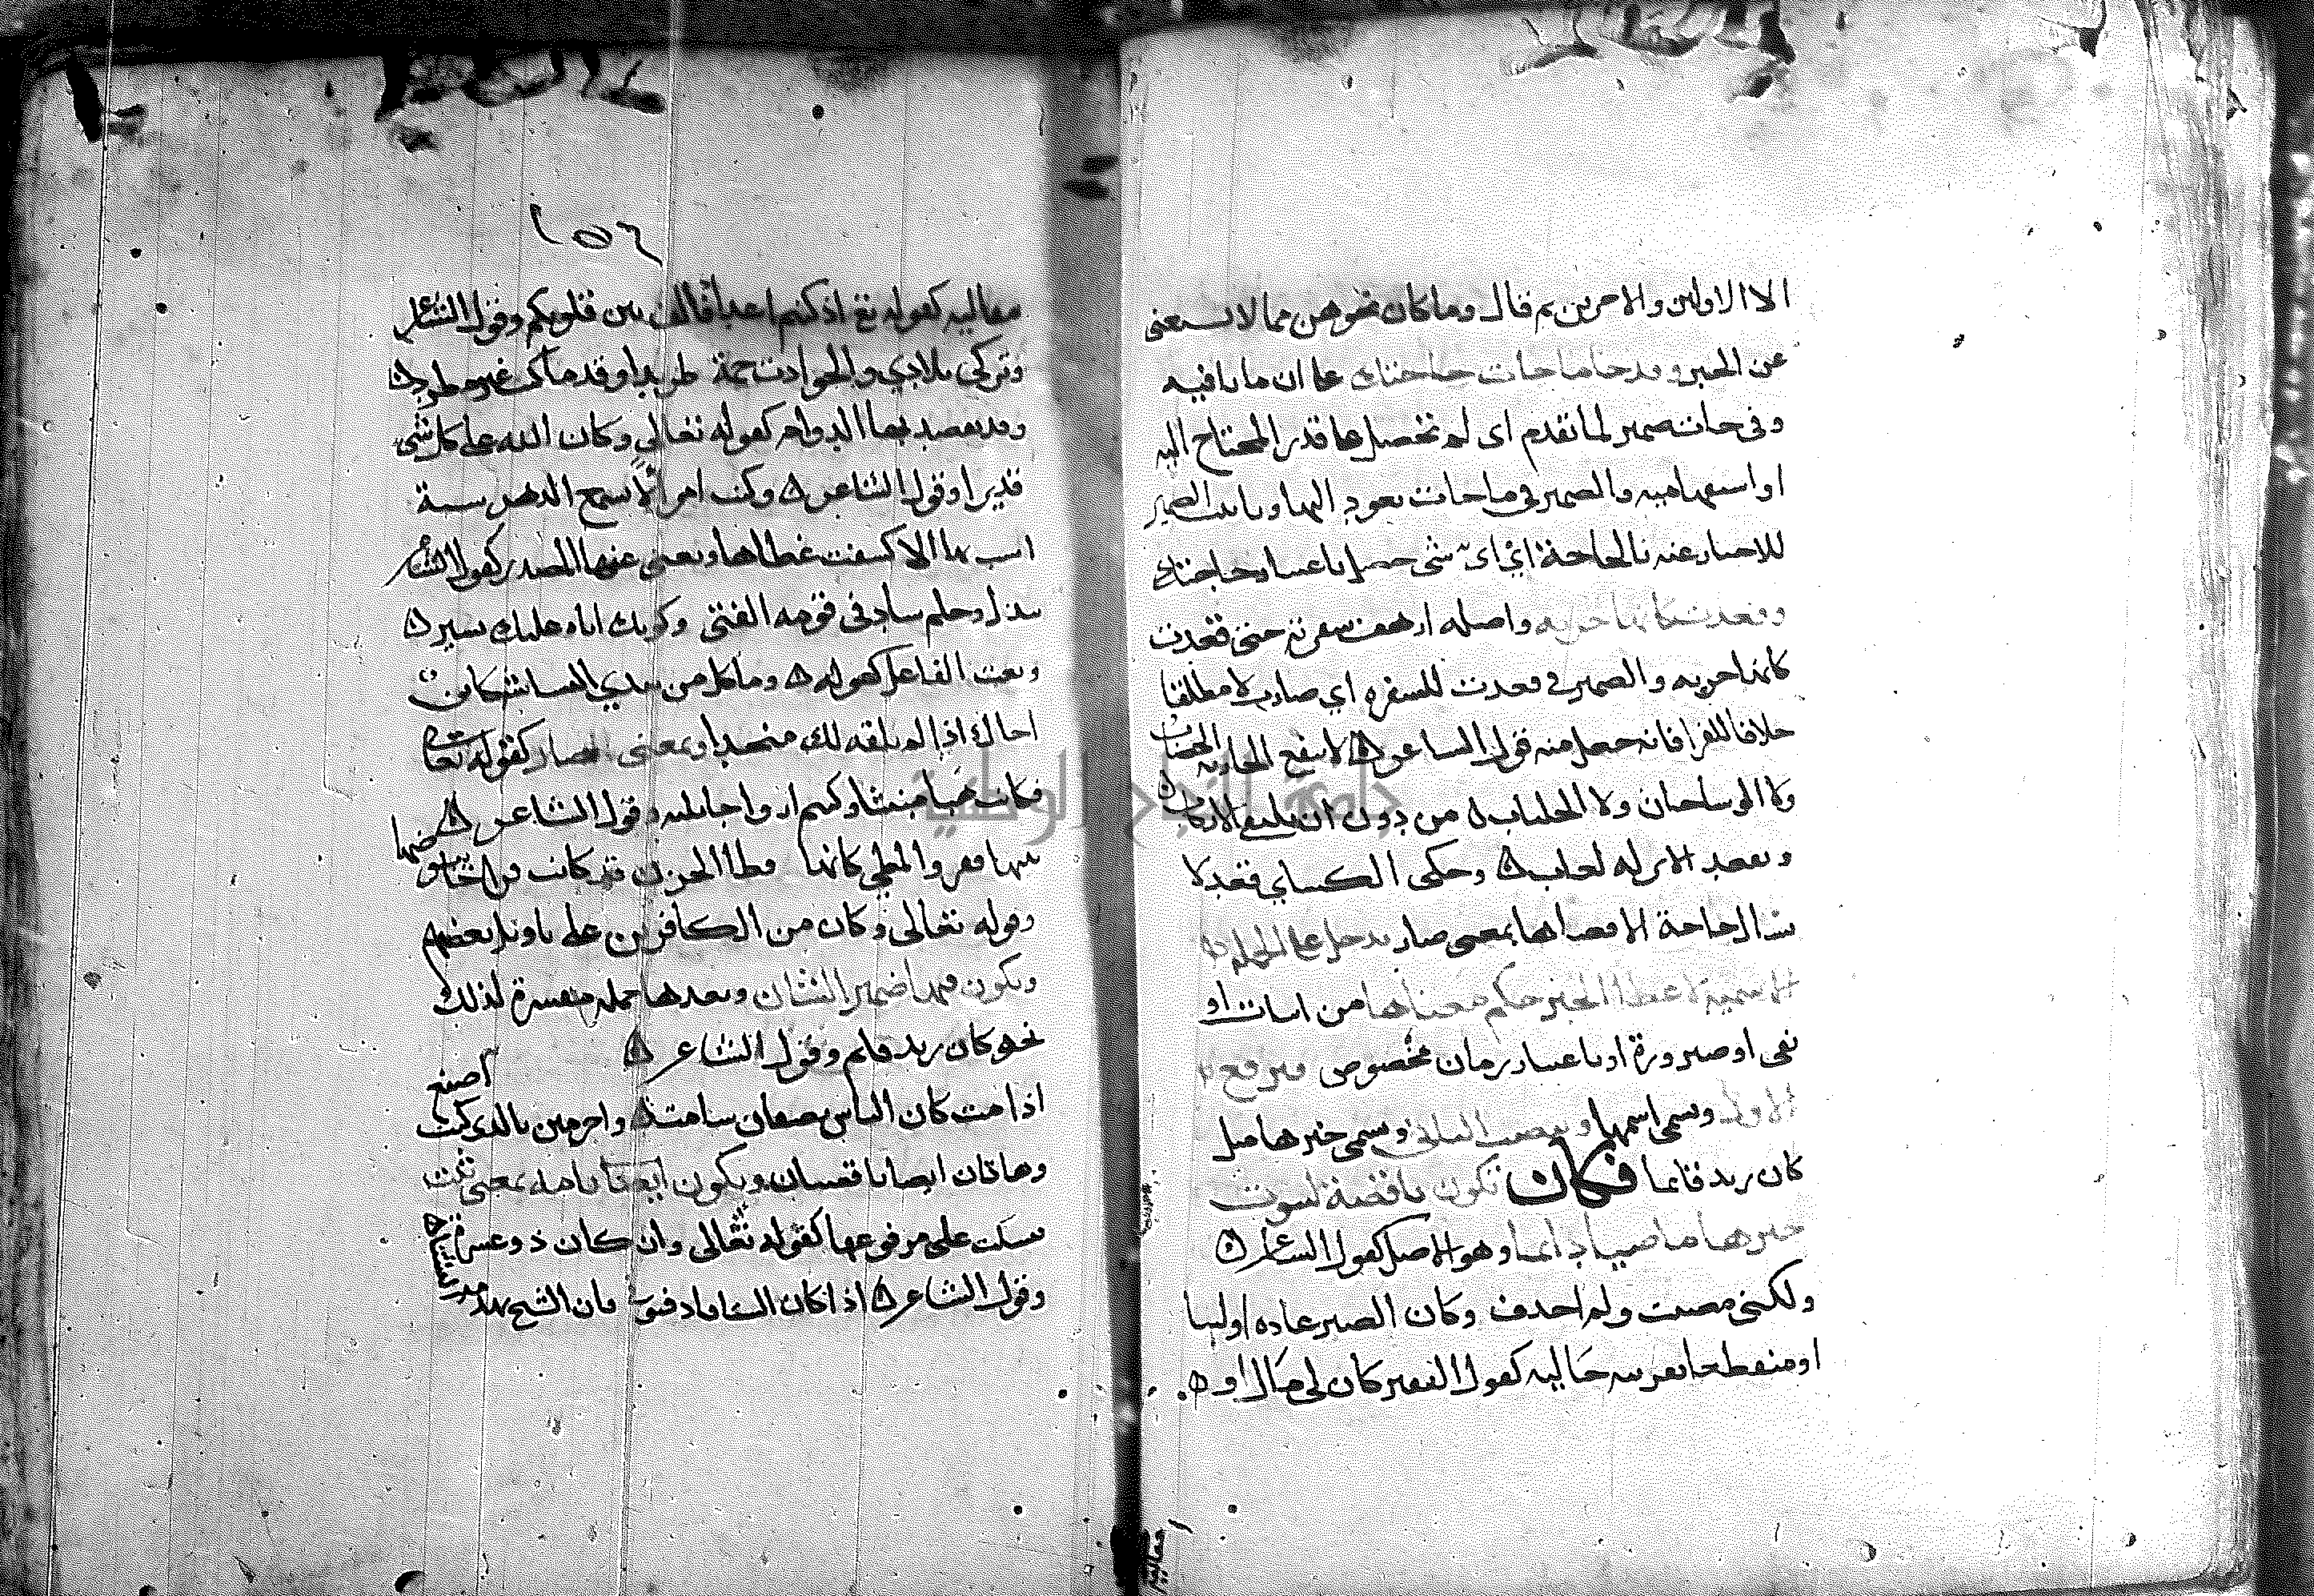 الا الاولين والاخرين ثم قال وما كان نحوهن مما لا يستغنى
عن الخبر وقد جا ما جات حاجتك على ان ما نافيه
وفي جات ضمير لما تقدم اى لم تحصل على قدر المحتاج اليه
او استفهاميه والضمير في ما جات يعود اليها وتانيث الضمير
للاخبار عنه بالحاجة اي اىّ شى حصل باعتبار حاجتك
وقعدت كانها حربه واصله ارهف شفرته حتى قعدت
كانها حربه والضمير في قعدت للشفره اي صارت لا مطلقا
خلافا للفرا فانه جعل منه قول الشاعر لا ينفع الجاريه الخضاب
ولا الوشاحان ولا الجلباب من دون ان تلتقي الاركاب
ويقعد الاير له لعاب وحكى الكسايي قعد لا
يسال حاجة الا قضاها بمعنى صار تدخل على الجمله
الاسميه لاعطا الخبر حكم معناها من اثبات او
نفى او صيرورة او باعتبار زمان مخصوص فترفع
الاول ويسمى اسمها وتنصب الثانى ويسمى خبرها مثل
كان زيد قائما فكان تكون ناقصة لثبوت
خبرها ماضيا دائما وهو الاصل كقول الشاعر
ولكنى مضيت ولم احذف وكان الصبر عاده اولينا
او منقطعا بقرينه حاليه كقول الفقير كان لى مال او
مقاليه
١٥٦
مقاليه كقوله تع اذ كنتم اعداء فالف بين قلوبكم وقول الشاعر
وتركى بلادي والحوادث جمة طريدا وقدما كنت غير مطرد
وقد يقصد بها الدوام كقوله تعالى وكان الله على كل شى
قديرا وقول الشاعر وكنت امرأ لا اسمع الدهر سبة
اسب بها الا كشفت غطاها ويغنى عنها المصدر كقول الشاعر
ببذل وحلم ساد فى قومه الفتى وكونك اياه عليك يسير
ونعت الفاعل كقوله وما كل من يبدي البشاشة كاين
اخاك اذا لم تلفه لك منجدا وبمعنى صار كقوله تعالى
فكانت هبا منبثا وكنتم ازواجا ثلثه وقول الشاعر
بتيها قفر والمطي كانها قطا الحزن قد كانت فراخا بيوضها
وقوله تعالى وكان من الكافرين على تاويل بعضهم
ويكون فيها ضمير الشان وبعدها جمله مفسرة لذلك
نحو كان زيد قايم وقول الشاعر
اذا مت كان الناس صنفان شامت واخر مثن بالذى كنت اصنع
وهاتان ايضا ناقصتان وتكون ايضا تامه بمعنى ثبت
يسكت على مرفوعها كقوله تعالى وان كان ذو عسرة
وقول الشاعر اذا كان الشتا فادفئونى فان الشيخ يهدمه الشتا